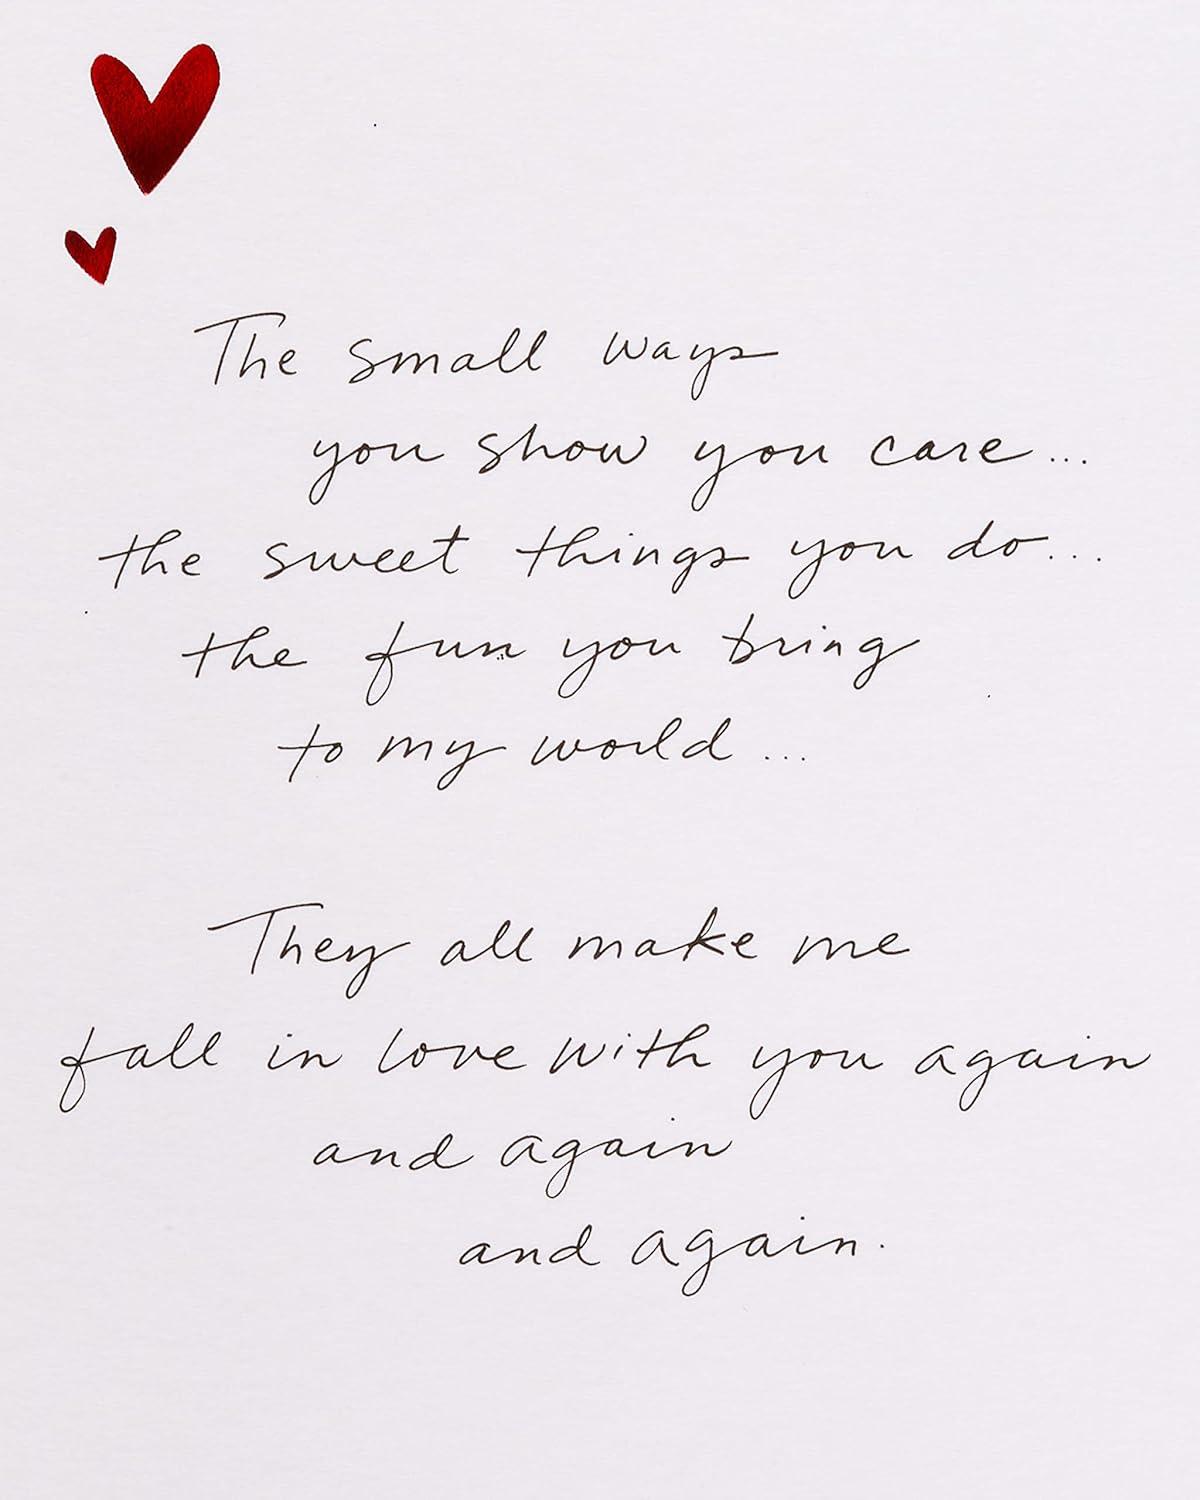 The small ways
you show you care...
the sweet things you do...
the fun you bring
to my world...
They all make me
fall in love with you again
and again
and again.